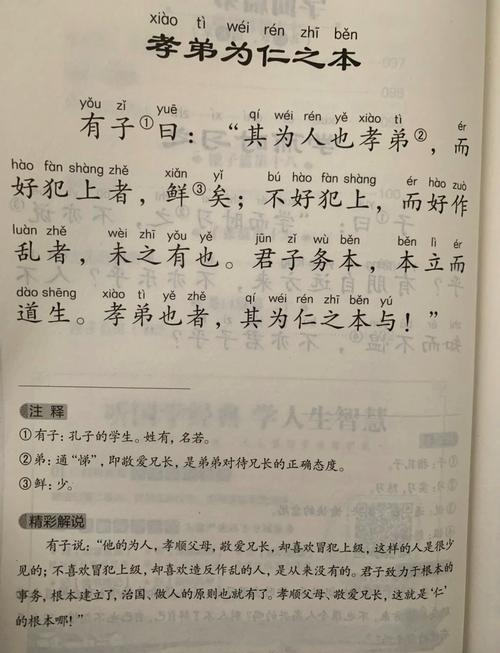 xiào tì wéi rén zhī běn
孝弟为仁之本
yǒu zǐ yuē qí wéi rén yě xiào tì ér
有子①曰：“其为人也孝弟②，而
hào fàn shàng zhě xiǎn yǐ bú hào fàn shàng ér hào zuò
好犯上者，鲜③矣；不好犯上，而好作
luàn zhě wèi zhī yǒu yě jūn zǐ wù běn běn lì ér
乱者，未之有也。君子务本，本立而
dào shēng xiào tì yě zhě qí wéi rén zhī běn yú
道生。孝弟也者，其为仁之本与！”
注 释
①有子：孔子的学生。姓有，名若。
②弟：通“悌”，即敬爱兄长，是弟弟对待兄长的正确态度。
③鲜：少。
精彩解说
有子说：“他的为人，孝顺父母，敬爱兄长，却喜欢冒犯上级，这样的人是很少
见的；不喜欢冒犯上级，却喜欢造反作乱的人，是从来没有的。君子致力于根本的
事务，根本建立了，治国、做人的原则也就有了。孝顺父母、敬爱兄长，这就是‘仁’
的根本哪！”